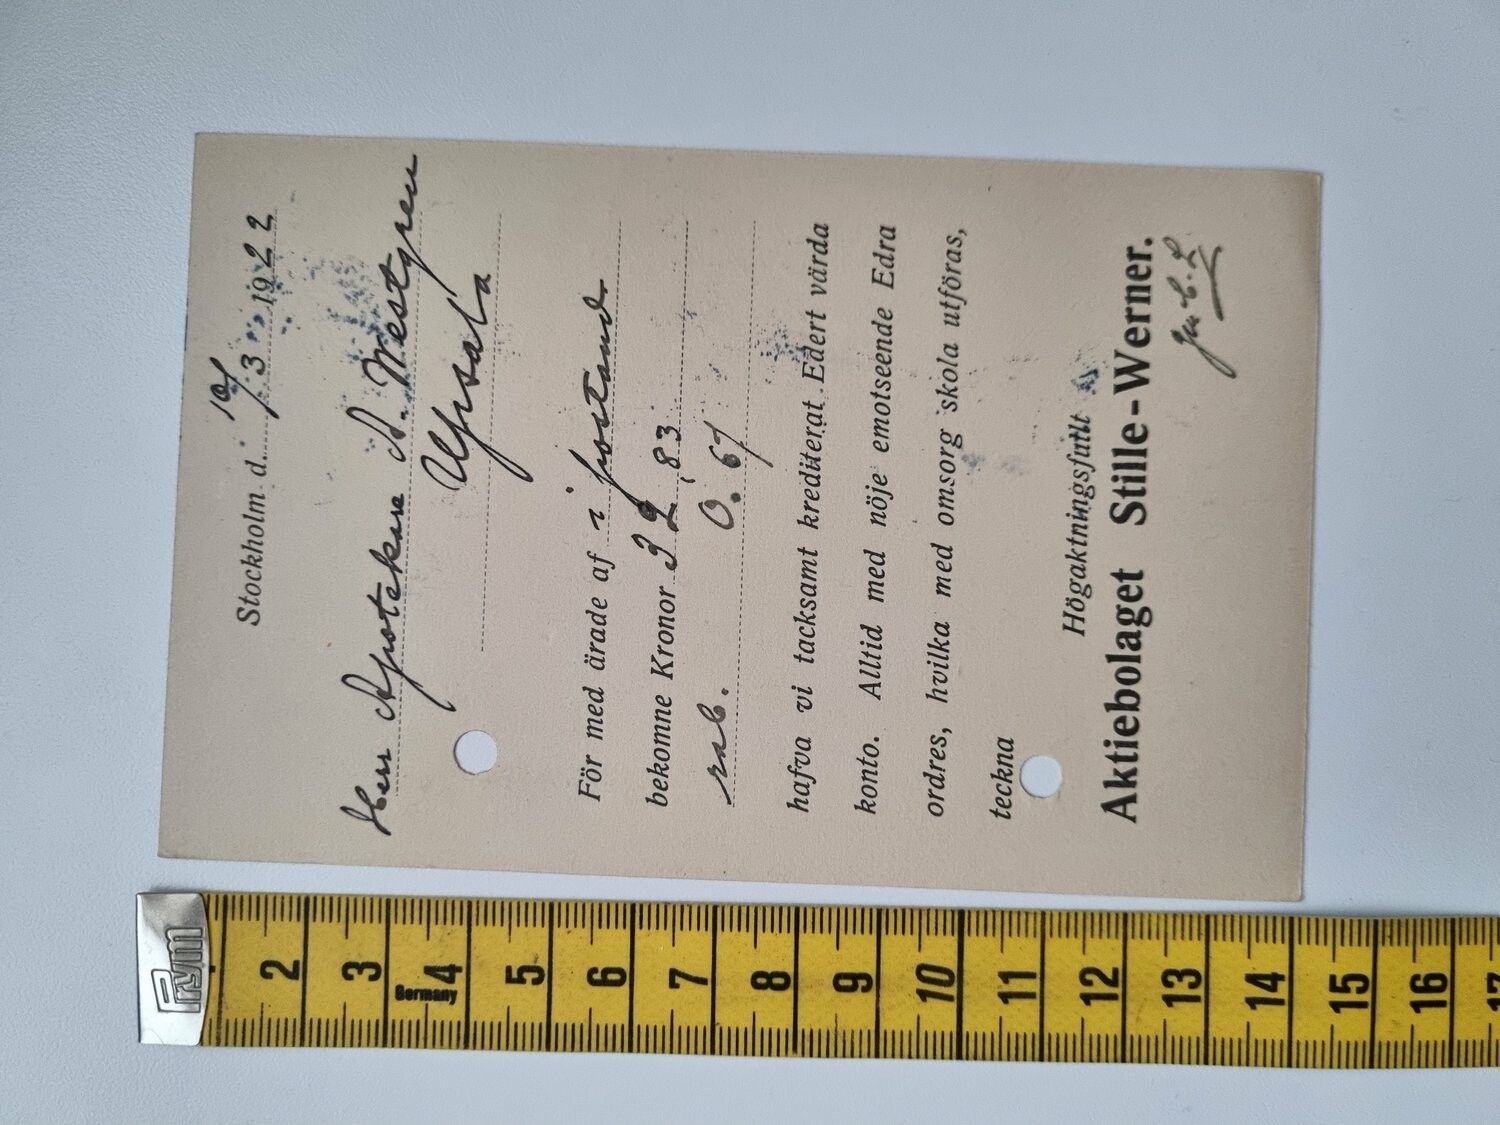 Stockholm d. 10/3 1922
Herr Apotekare A. Westgren
Upsala
För med ärade af i postanv.
bekomne Kronor 32,83
rab. 0.67
hafva vi tacksamt krediterat Edert värda
konto. Alltid med nöje emotseende Edra
ordres, hvilka med omsorg skola utföras,
teckna
Högaktningsfullt
Aktiebolaget Stille-Werner.
Prym
2 3 4 5 6 7 8 9 10 11 12 13 14 15 16 17
Germany